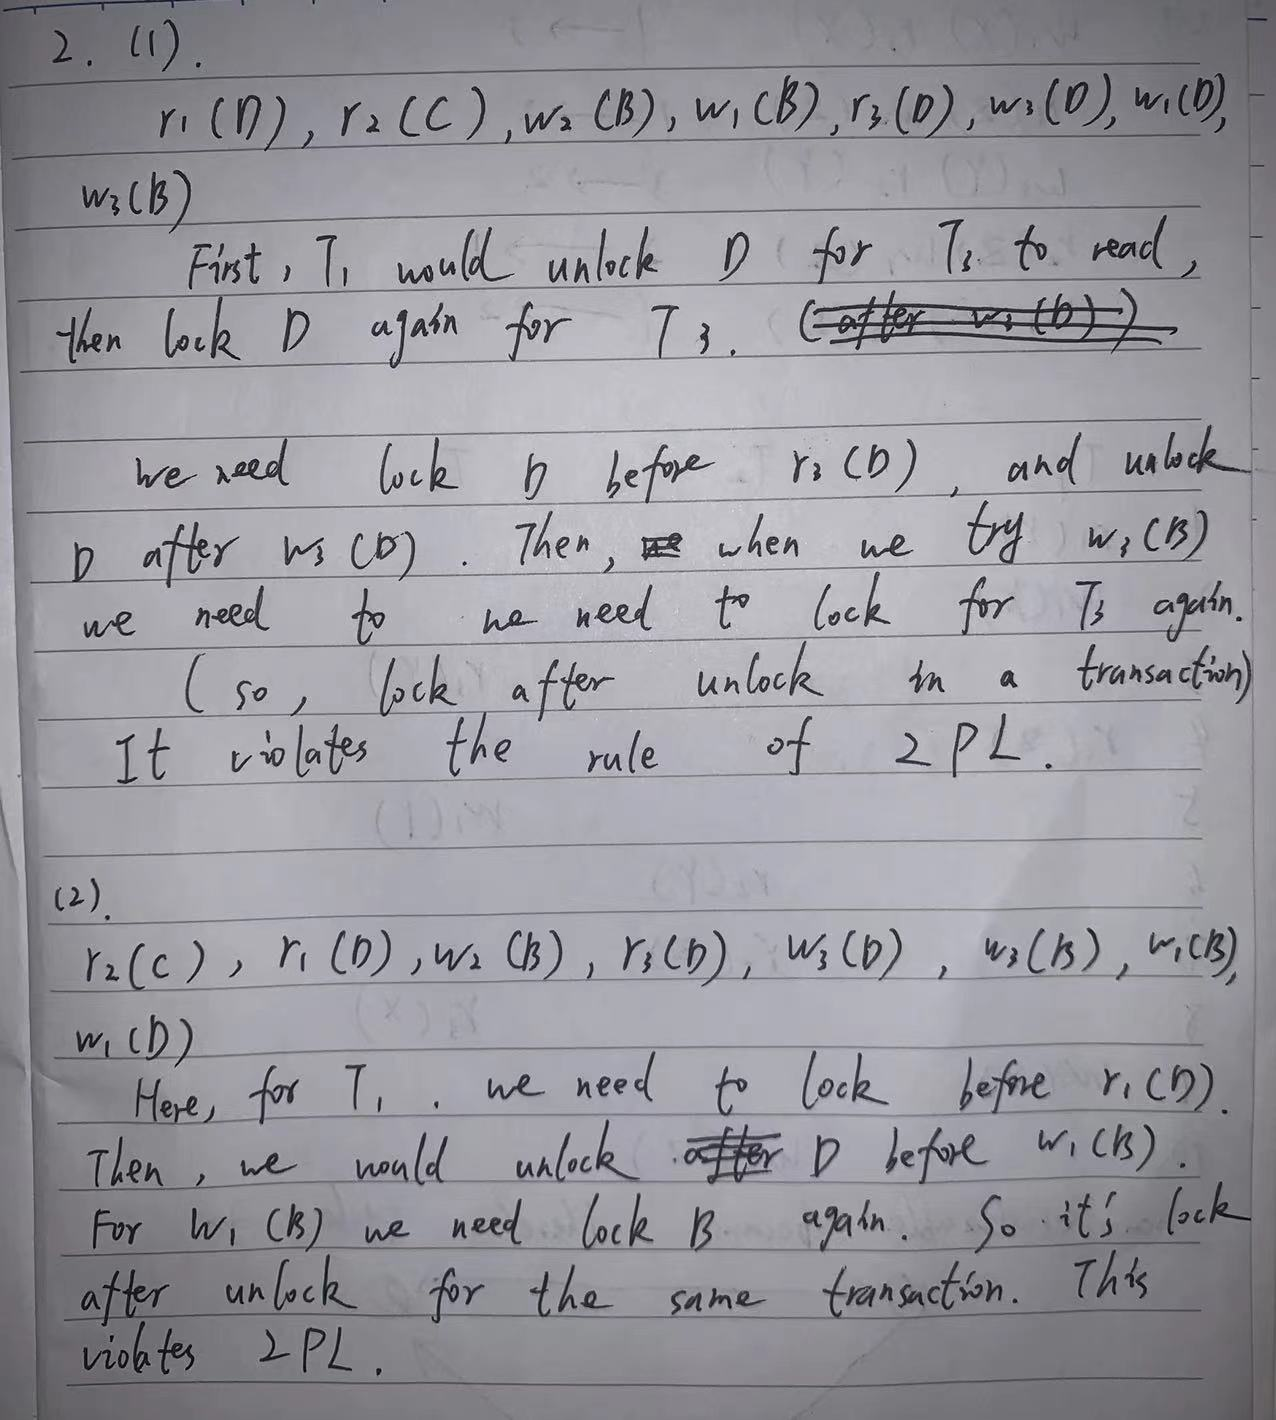 2. (1).
r1(D), r2(C), w2(B), w1(B), r3(D), w3(D), w1(D),
w3(B)
First, T1 would unlock D for T3 to read,
then lock D again for T3. (after w3(D))
we need lock D before r3(D), and unlock
D after w3(D). Then, we when we try w3(B)
we need to we need to lock for T3 again.
(so, lock after unlock in a transaction)
It violates the rule of 2PL.
(2).
r2(C), r1(D), w2(B), r3(D), w3(D), w3(B), w1(B),
w1(D)
Here, for T1. we need to lock before r1(D).
Then, we would unlock after D before w1(B).
For w1(B) we need lock B again. So it's lock
after unlock for the same transaction. This
violates 2PL.